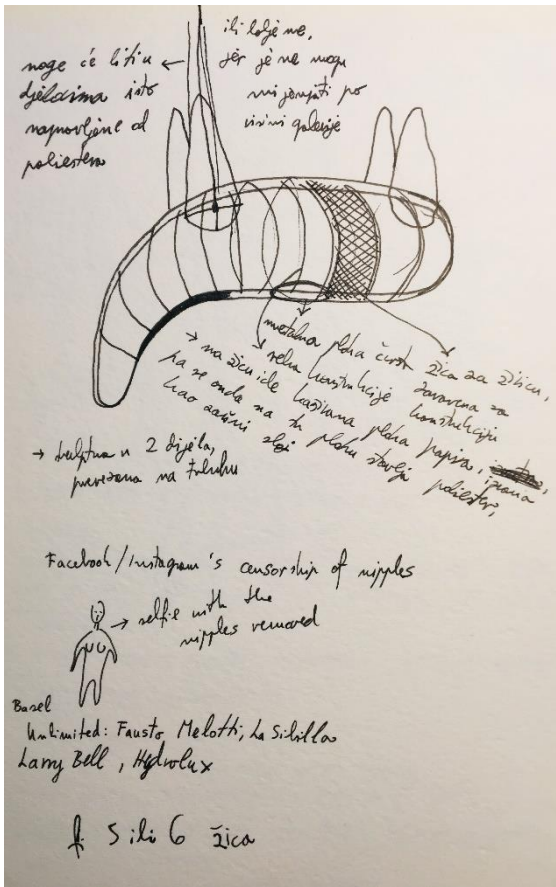 noge će biti u
djelovima isto
napravljene od
poliestera
ili bolje ne,
jer je ne mogu
mijenjati po
visini galerije
metalna ploha čvrsta žica za žicu,
rebra konstrukcije zavarena za
konstrukciju
→ na žicu ide kaširana ploha papira,
pa se onda na tu plohu stavlja poliester,
kao završni sloj
→ skulptura u 2 dijela,
povezana na trbuhu
Facebook/Instagram's censorship of nipples
→ selfie with the
nipples removed
Basel
Unlimited: Fausto Melotti, La Sibilla
Larry Bell, Hydrolux
5 ili 6 žica